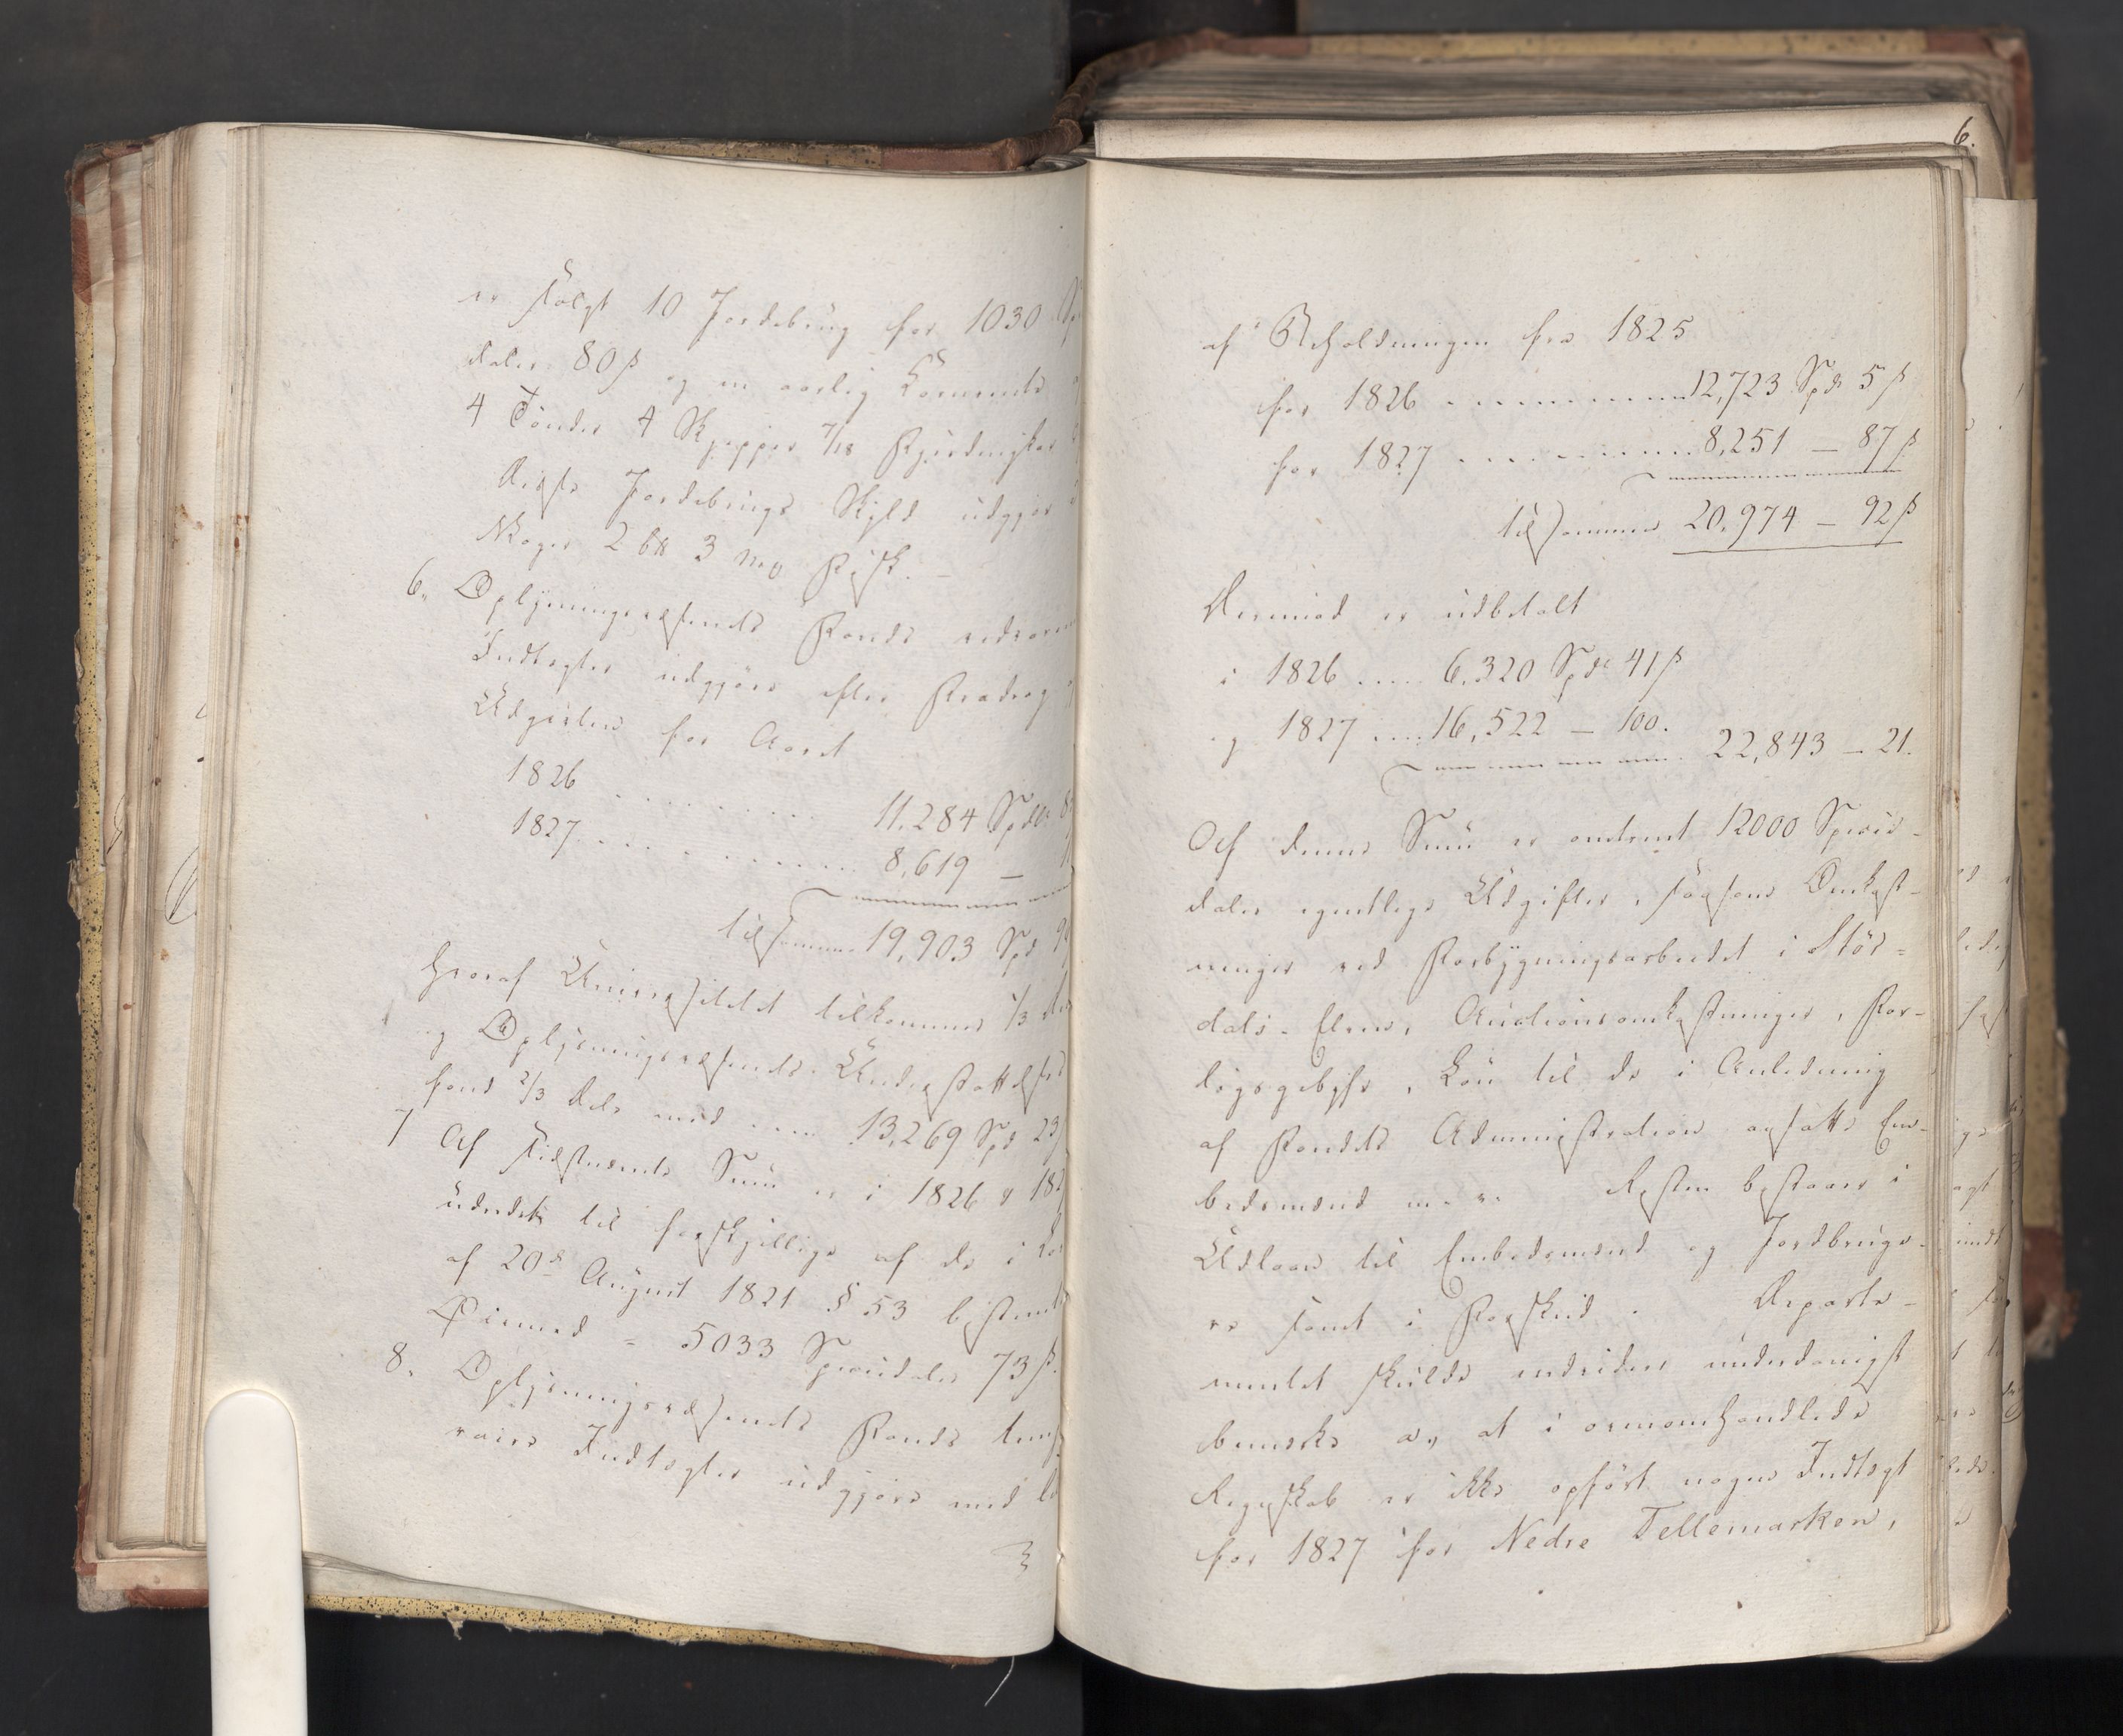 er solgt 10 Jordebrug for 1030 Sp
daler 80 ß og en aarlig Kornrente
4 Tønder 4 Skjepper 7/18 Fjerdingkar
Disse Jordebrugs Skyld udgjør
Mæger 2 b℔ 3 mrk Fisk. –
6, Oplysningsvæsenets Fonds vedvaren
Indtægter udgjøre efter Fradrag
Udgivter for Aaret
1826 . . . . . . . 11.284 Spdlr 8
1827 . . . . . . . 8,619 –
tilsammen 19,903 Spd 9
hvoraf Universitetet tilkommer 1/3 Deel
og Oplysningsvæsenets Understøttelses
fond 2/3 Dele med .... 13,269 Spd 23
7 Af sidstnævnte Sum er i 1826 & 182
udredet til forskjellige af de i Lov
af 20de August 1821 § 53 bestemte
Øiemed = 5033 Speciedaler 73 ß.
8, Oplysningsvæsenets Fonds temp
raire Indtægter udgjøre med
6.
af Beholdningen fra 1825
for 1826 . . . . . . . 12,723 Spdr 5 ß
for 1827 . . . . . . . 8,251 – 87 ß
tilsammen 20,974 – 92 ß
Derimod er udbetalt
i 1826 ..... 6.320 Spdr 41 ß
og 1827 .... 16,522 – 100. 22,843 – 21.
Af denne Sum er omtrent 12000 Specie-
daler egentlige Udgifter, saasom Omkost-
ninger ved Forbygningsarbeidet i Stør-
dals-Elven, Auctionsomkostninger, For-
ligsgebyhr, Løn til de i Anledning
af Fondets Administration ansatte Em-
bedsmænd m.v. Resten bestaaer i
Udlaan til Embedsmænd og Jordbruge-
re samt i Forskud. Departe-
mentet skulde endvidere underdanigst
bemærke a, at i ovenomhandlede
Regnskab er ikke opført nogen Indtægt
for 1827 for Nedre Tellemarken,